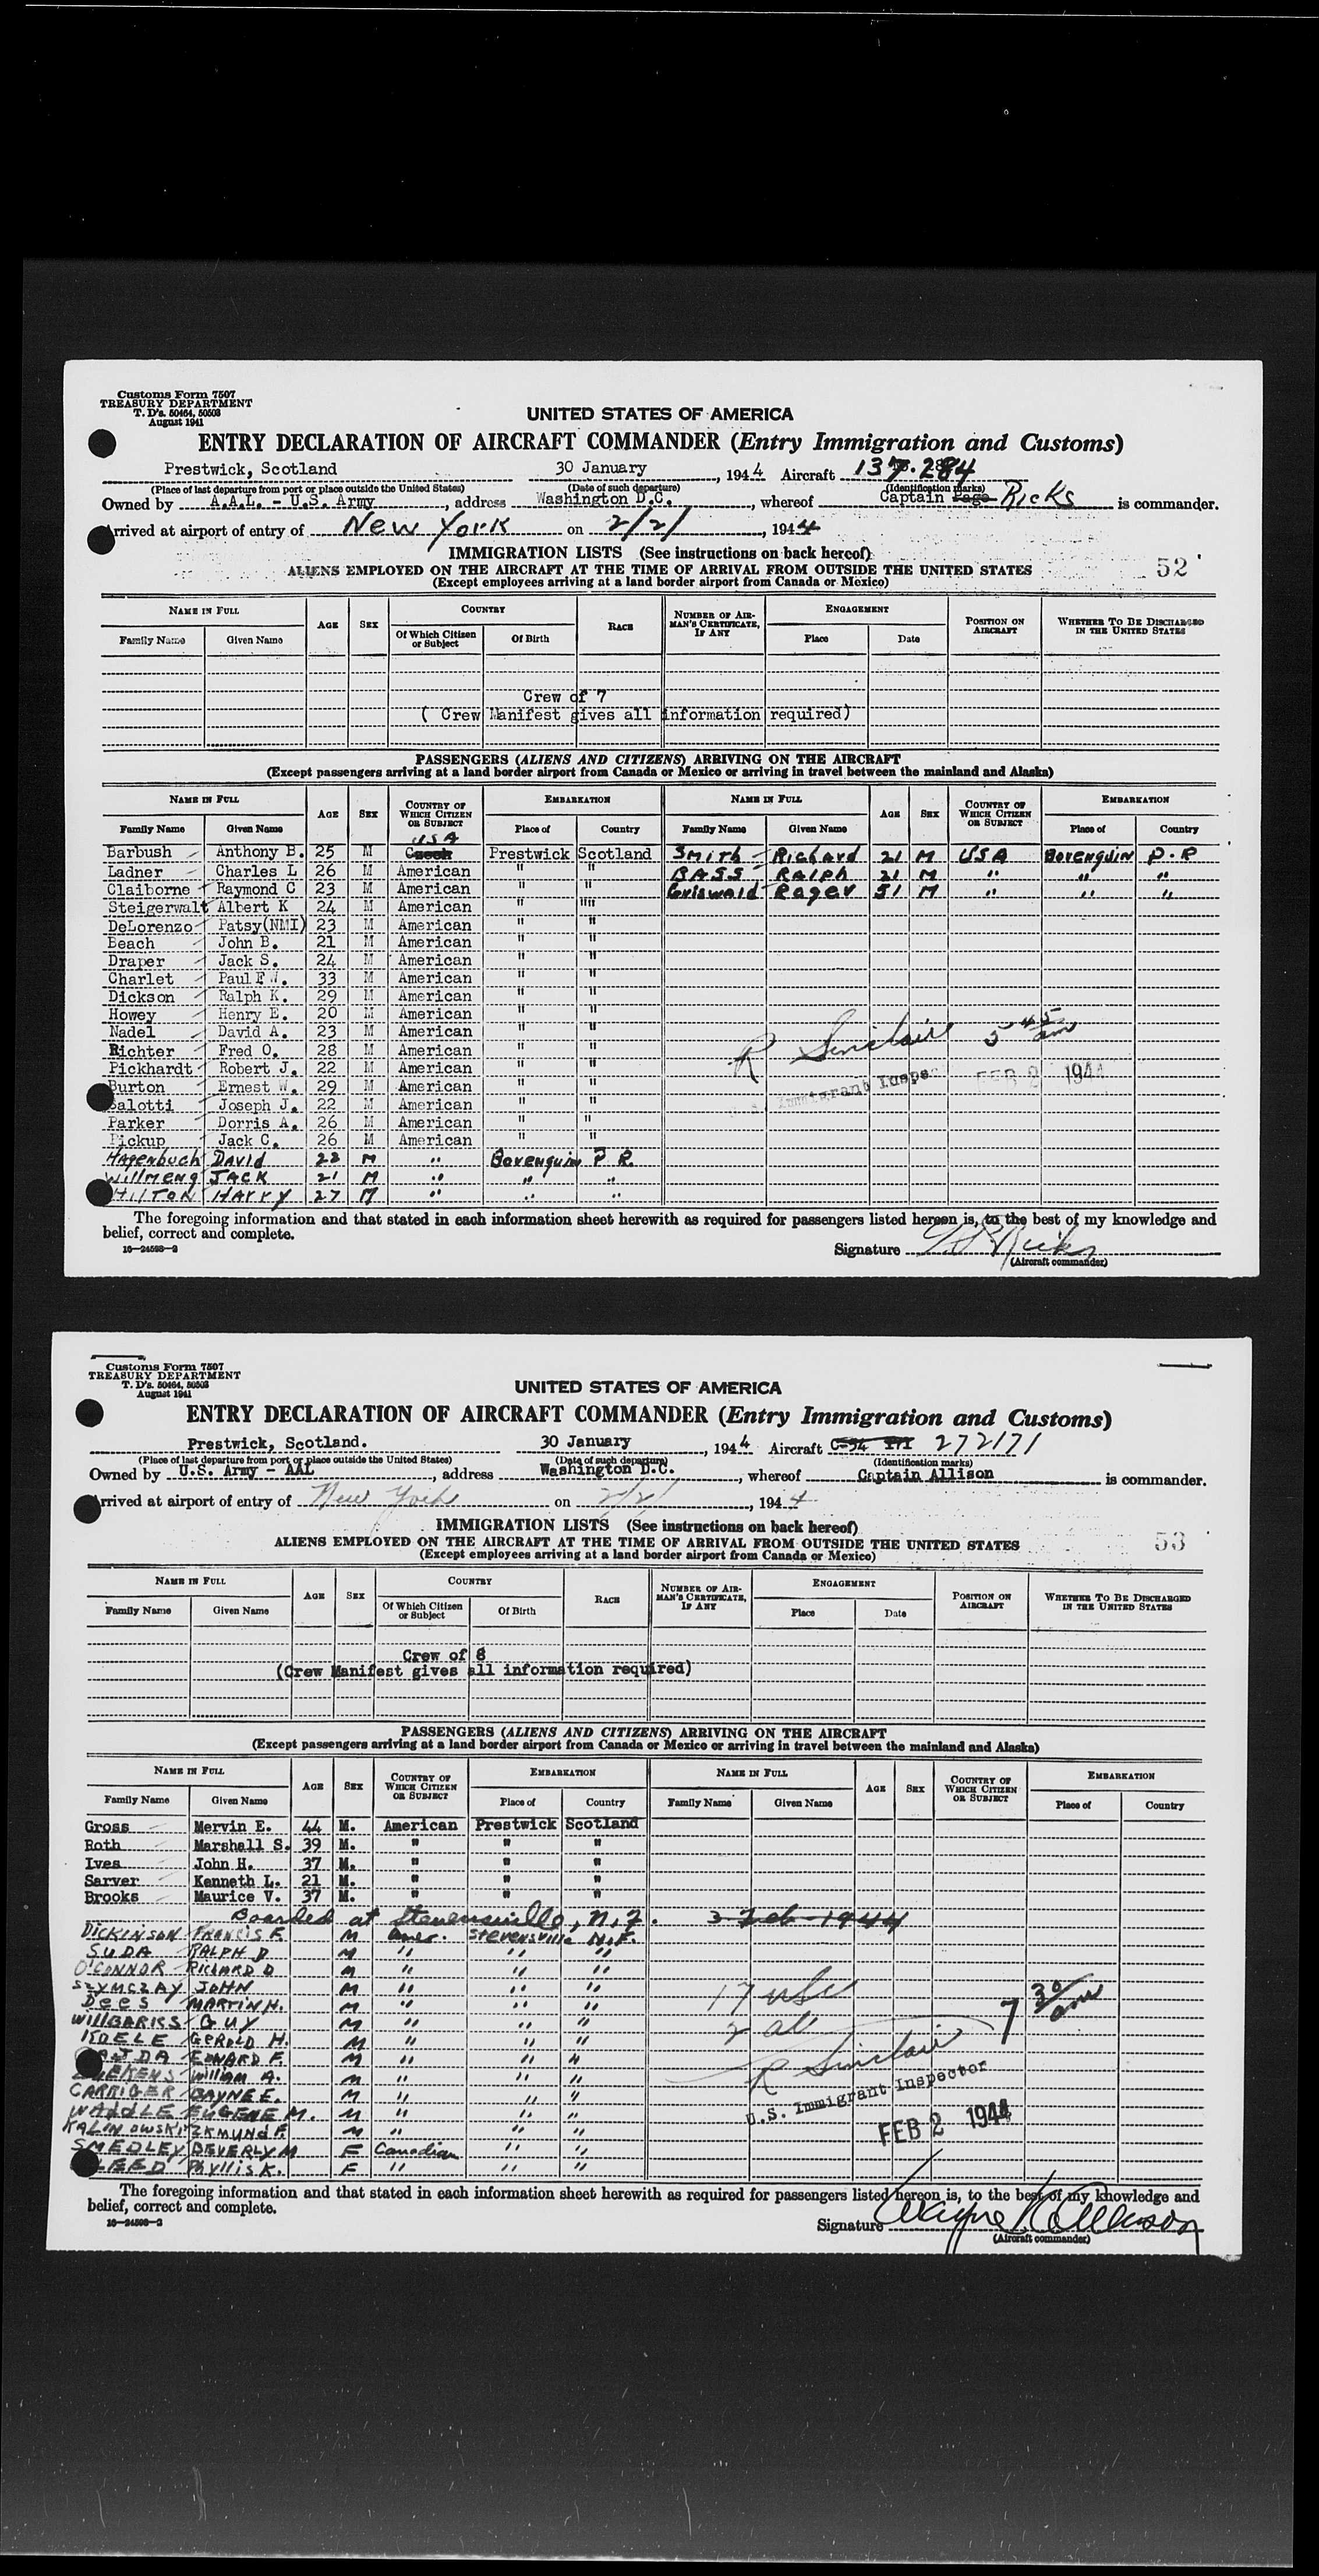 Customs Form 7507
TREASURY DEPARTMENT
T. D's. 50464, 50503
August 1941
UNITED STATES OF AMERICA
ENTRY DECLARATION OF AIRCRAFT COMMANDER (Entry Immigration and Customs)
Prestwick, Scotland 30 January, 1944 Aircraft 137.284
(Place of last departure from port or place outside the United States) (Date of such departure) (Identification marks)
Owned by A.A.L. - U.S. Army, address Washington D.C., whereof Captain Page Ricks is commander.
Arrived at airport of entry of New York on 2/2/, 1944
IMMIGRATION LISTS (See instructions on back hereof)
52
ALIENS EMPLOYED ON THE AIRCRAFT AT THE TIME OF ARRIVAL FROM OUTSIDE THE UNITED STATES
(Except employees arriving at a land border airport from Canada or Mexico)
NAME IN FULL AGE SEX COUNTRY RACE NUMBER OF AIRMAN'S CERTIFICATE, IF ANY ENGAGEMENT POSITION ON AIRCRAFT WHETHER TO BE DISCHARGED IN THE UNITED STATES
Family Name Given Name Of Which Citizen or Subject Of Birth Place Date
Crew of 7
( Crew Manifest gives all information required)
PASSENGERS (ALIENS AND CITIZENS) ARRIVING ON THE AIRCRAFT
(Except passengers arriving at a land border airport from Canada or Mexico or arriving in travel between the mainland and Alaska)
NAME IN FULL AGE SEX COUNTRY OF WHICH CITIZEN OR SUBJECT EMBARKATION NAME IN FULL AGE SEX COUNTRY OF WHICH CITIZEN OR SUBJECT EMBARKATION
Family Name Given Name Place of Country Family Name Given Name Place of Country
USA
Barbush Anthony B. 25 M Czech Prestwick Scotland Smith Richard 21 M USA Borenquin P.R
Ladner Charles L 26 M American " " BASS RALPH 21 M " " "
Claiborne Raymond C 23 M American " " Griswald Roger 31 M " " "
Steigerwalt Albert K 24 M American " ""
DeLorenzo Patsy(NMI) 23 M American " "
Beach John B. 21 M American " "
Draper Jack S. 24 M American " "
Charlet Paul F W. 33 M American " "
Dickson Ralph K. 29 M American " "
Howey Henry E. 20 M American " "
Nadel David A. 23 M American " "
Richter Fred O. 28 M American " "
Pickhardt Robert J. 22 M American " "
Burton Ernest W. 29 M American " "
Salotti Joseph J. 22 M American " "
Parker Dorris A. 26 M American " "
Pickup Jack C. 26 M American " "
Hagenbuch DAVID 22 M " Borenquin P R.
Willmeng JACK 21 M " " "
HILTON HARRY 27 M " " "
R Sinclair 5 45 am
U.S. Immigrant Inspe FEB 2 1944
The foregoing information and that stated in each information sheet herewith as required for passengers listed hereon is, to the best of my knowledge and
belief, correct and complete.
16—24598—2
Signature Ricks
(Aircraft commander)
Customs Form 7507
TREASURY DEPARTMENT
T. D's. 50464, 50503
August 1941
UNITED STATES OF AMERICA
ENTRY DECLARATION OF AIRCRAFT COMMANDER (Entry Immigration and Customs)
Prestwick, Scotland. 30 January, 1944 Aircraft C-54 272171
(Place of last departure from port or place outside the United States) (Date of such departure) (Identification marks)
Owned by U.S. Army - AAL, address Washington D.C., whereof Captain Allison is commander.
Arrived at airport of entry of New York on 2/2/, 1944
IMMIGRATION LISTS (See instructions on back hereof)
53
ALIENS EMPLOYED ON THE AIRCRAFT AT THE TIME OF ARRIVAL FROM OUTSIDE THE UNITED STATES
(Except employees arriving at a land border airport from Canada or Mexico)
NAME IN FULL AGE SEX COUNTRY RACE NUMBER OF AIRMAN'S CERTIFICATE, IF ANY ENGAGEMENT POSITION ON AIRCRAFT WHETHER TO BE DISCHARGED IN THE UNITED STATES
Family Name Given Name Of Which Citizen or Subject Of Birth Place Date
Crew of 8
(Crew Manifest gives all information required)
PASSENGERS (ALIENS AND CITIZENS) ARRIVING ON THE AIRCRAFT
(Except passengers arriving at a land border airport from Canada or Mexico or arriving in travel between the mainland and Alaska)
NAME IN FULL AGE SEX COUNTRY OF WHICH CITIZEN OR SUBJECT EMBARKATION NAME IN FULL AGE SEX COUNTRY OF WHICH CITIZEN OR SUBJECT EMBARKATION
Family Name Given Name Place of Country Family Name Given Name Place of Country
Gross Mervin E. 44 M. American Prestwick Scotland
Roth Marshall S. 39 M. " " "
Ives John H. 37 M. " " "
Sarver Kenneth L. 21 M. " " "
Brooks Maurice V. 37 M. " " "
Boarded at Stevensville, N.F. 2 Feb-1944
DICKINSON FRANCIS F. M Amer. Stevensville N.F.
SUDA RALPH D M " " "
O'CONNOR RICHARD D M " " "
SZYMCZAY JOHN M " " "
Dees MARTIN H. M " " "
WILLBARKS GUY M " " "
KOELE GEROLD H. M " " "
EDWARD F. M " " "
William A. M " " "
CARRIGER GAYNE E. M " " "
WADDLE EUGENE M. M " " "
KALINOWSKI ZKMUND F. M " " "
SMEDLEY BEVERLY M F Canadian " "
Phyllis K. F " " "
17 USC
2 al
7 30 am
R Sinclair
U.S. Immigrant Inspector
FEB 2 1944
The foregoing information and that stated in each information sheet herewith as required for passengers listed hereon is, to the best of my knowledge and
belief, correct and complete.
16—24598—2
Signature Wayne K Allison
(Aircraft commander)